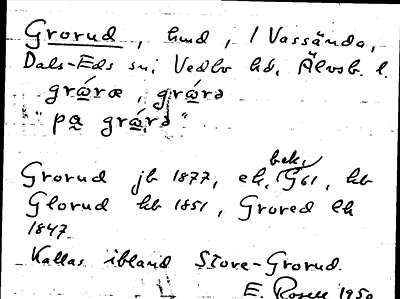 Grorud, hmd, i Vassända,
Dals-Eds sn, Vedbo hd, Älvsb. l.
grώ̣ræ, grώ̣rə
"pą grώ̣rə"
bek.
Grorud jb 1877, ek, G61, kb
Glorud kb 1851, Grored Ek
1847
Kallas ibland Store-Grorud.
E. Rosell 1950